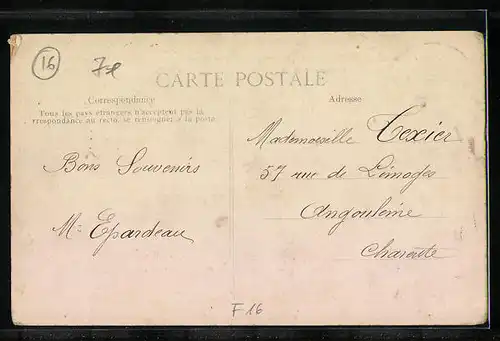 16
CARTE POSTALE
Correspondance
Tous les pays étrangers n'acceptent pas la
rrespondance au recto, se renseigner à la poste
Bons Souvenirs
M. Epardeau
Adresse
Mademoiselle Texier
57 rue de Limoges
Angoulême
Charente
F 16